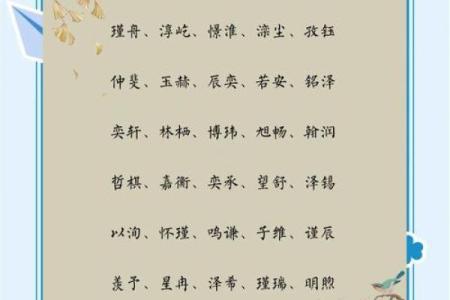 瑾舟、淳屹、憬淮、滦尘、孜钰
仲斐、玉赫、辰奕、若安、铭泽
奕轩、林栖、博玮、旭畅、翰润
哲棋、嘉衡、奕承、望舒、泽锡
以洵、怀瑾、鸣谦、子维、谨辰
羡予、星冉、泽希、瑾瑞、明煦